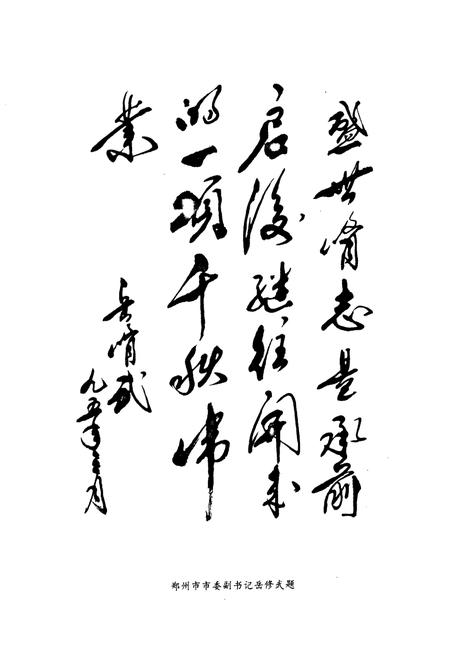 盛世修志是承前
启後继往开来
的一项千秋伟
業
岳修武
九五年三月
郑州市市委副书记岳修武题